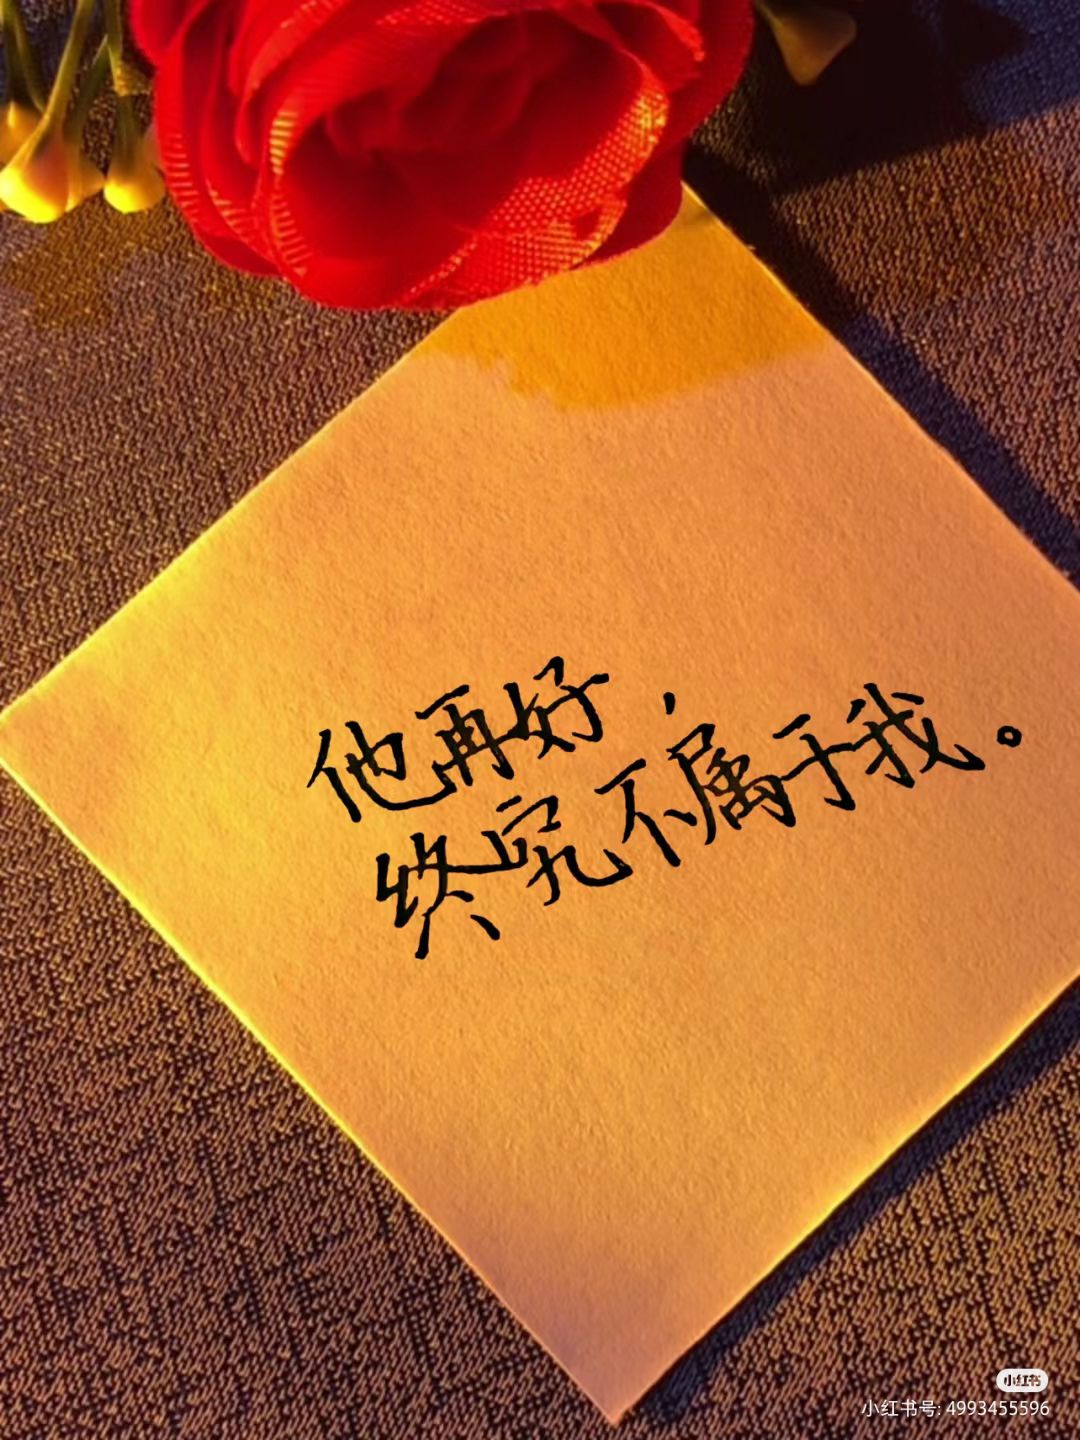 他再好，
终究不属于我。
小红书
小红书号: 4993455596